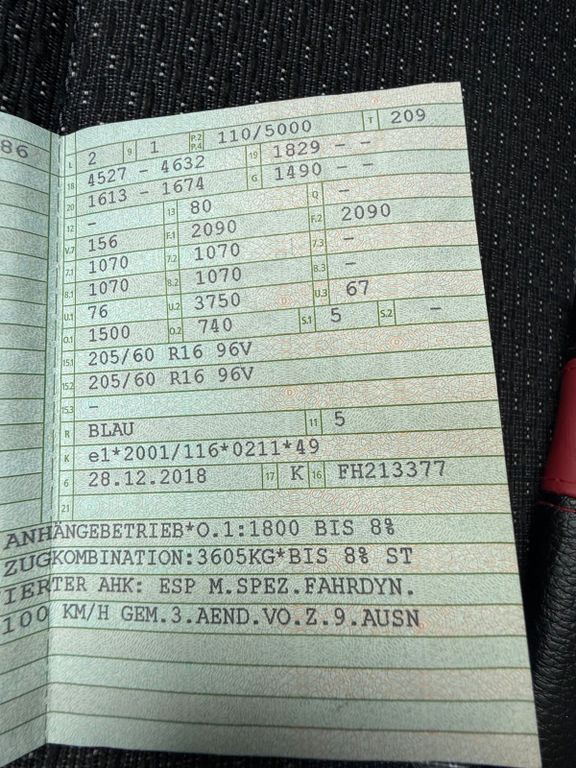 86
L 2 9 1 P.2 P.4 110/5000 T 209
18 4527 - 4632 19 1829 - -
20 1613 - 1674 G 1490 - -
12 - 13 80 Q -
V.7 156 F.1 2090 F.2 2090
7.1 1070 7.2 1070 7.3 -
8.1 1070 8.2 1070 8.3 -
U.1 76 U.2 3750 U.3 67
O.1 1500 O.2 740 S.1 5 S.2 -
15.1 205/60 R16 96V
15.2 205/60 R16 96V
15.3 -
R BLAU 11 5
K e1*2001/116*0211*49
6 28.12.2018 17 K 16 FH213377
21
ANHÄNGEBETRIEB*O.1:1800 BIS 8%
ZUGKOMBINATION:3605KG*BIS 8% ST
IERTER AHK: ESP M.SPEZ.FAHRDYN.
100 KM/H GEM.3.AEND.VO.Z.9.AUSN